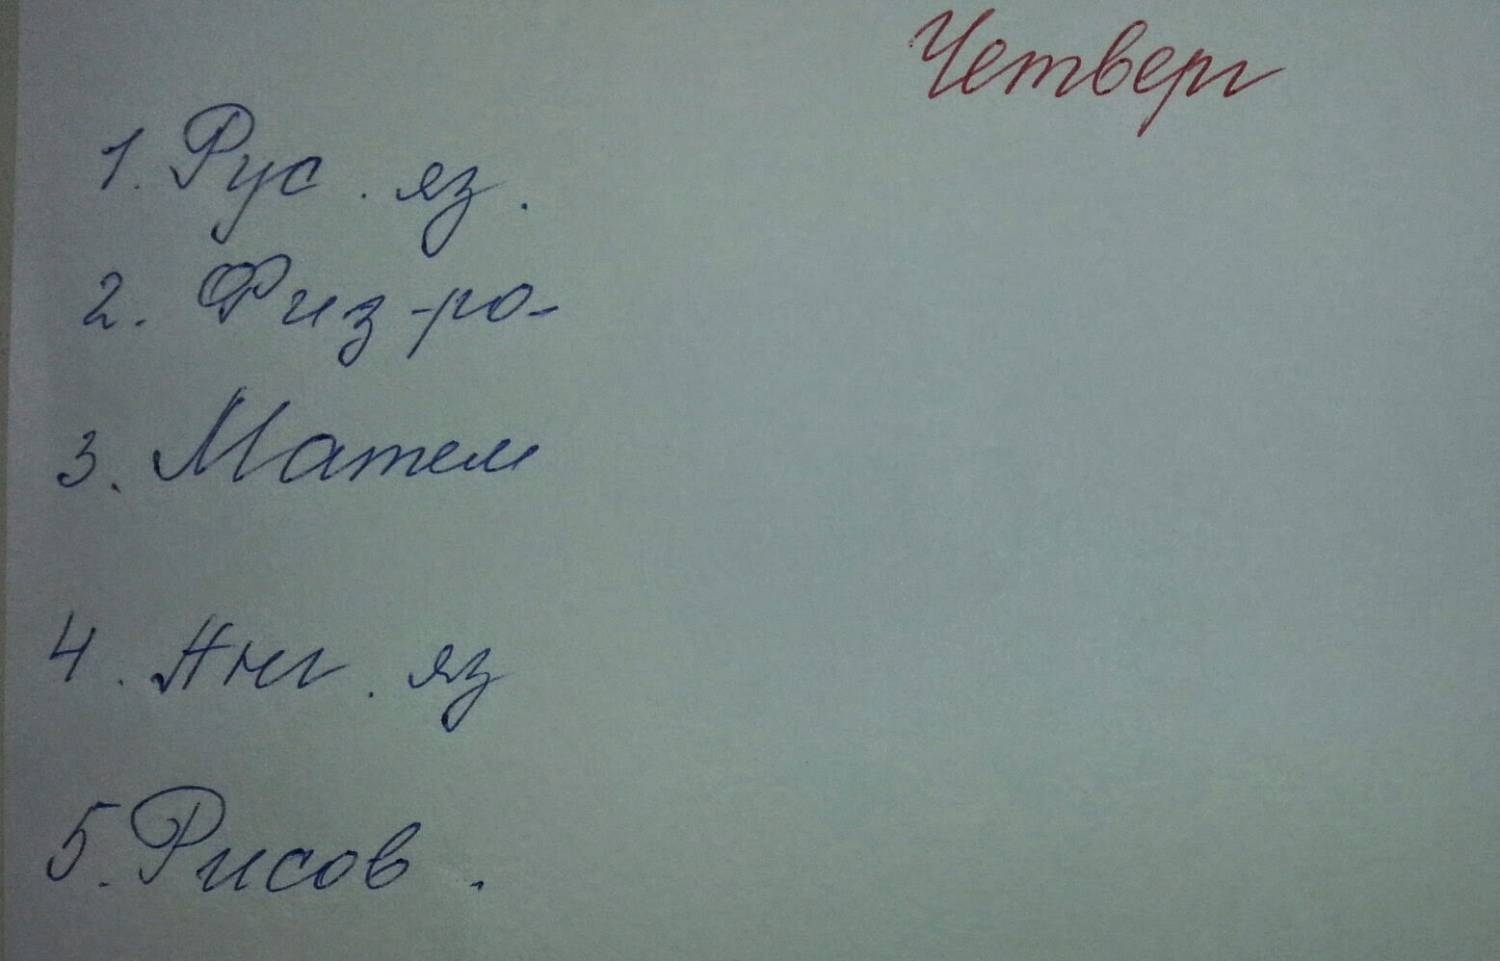 Четверг
1. Рус. яз.
2. Физ-ро-
3. Матем
4. Анг. яз
5. Рисов.